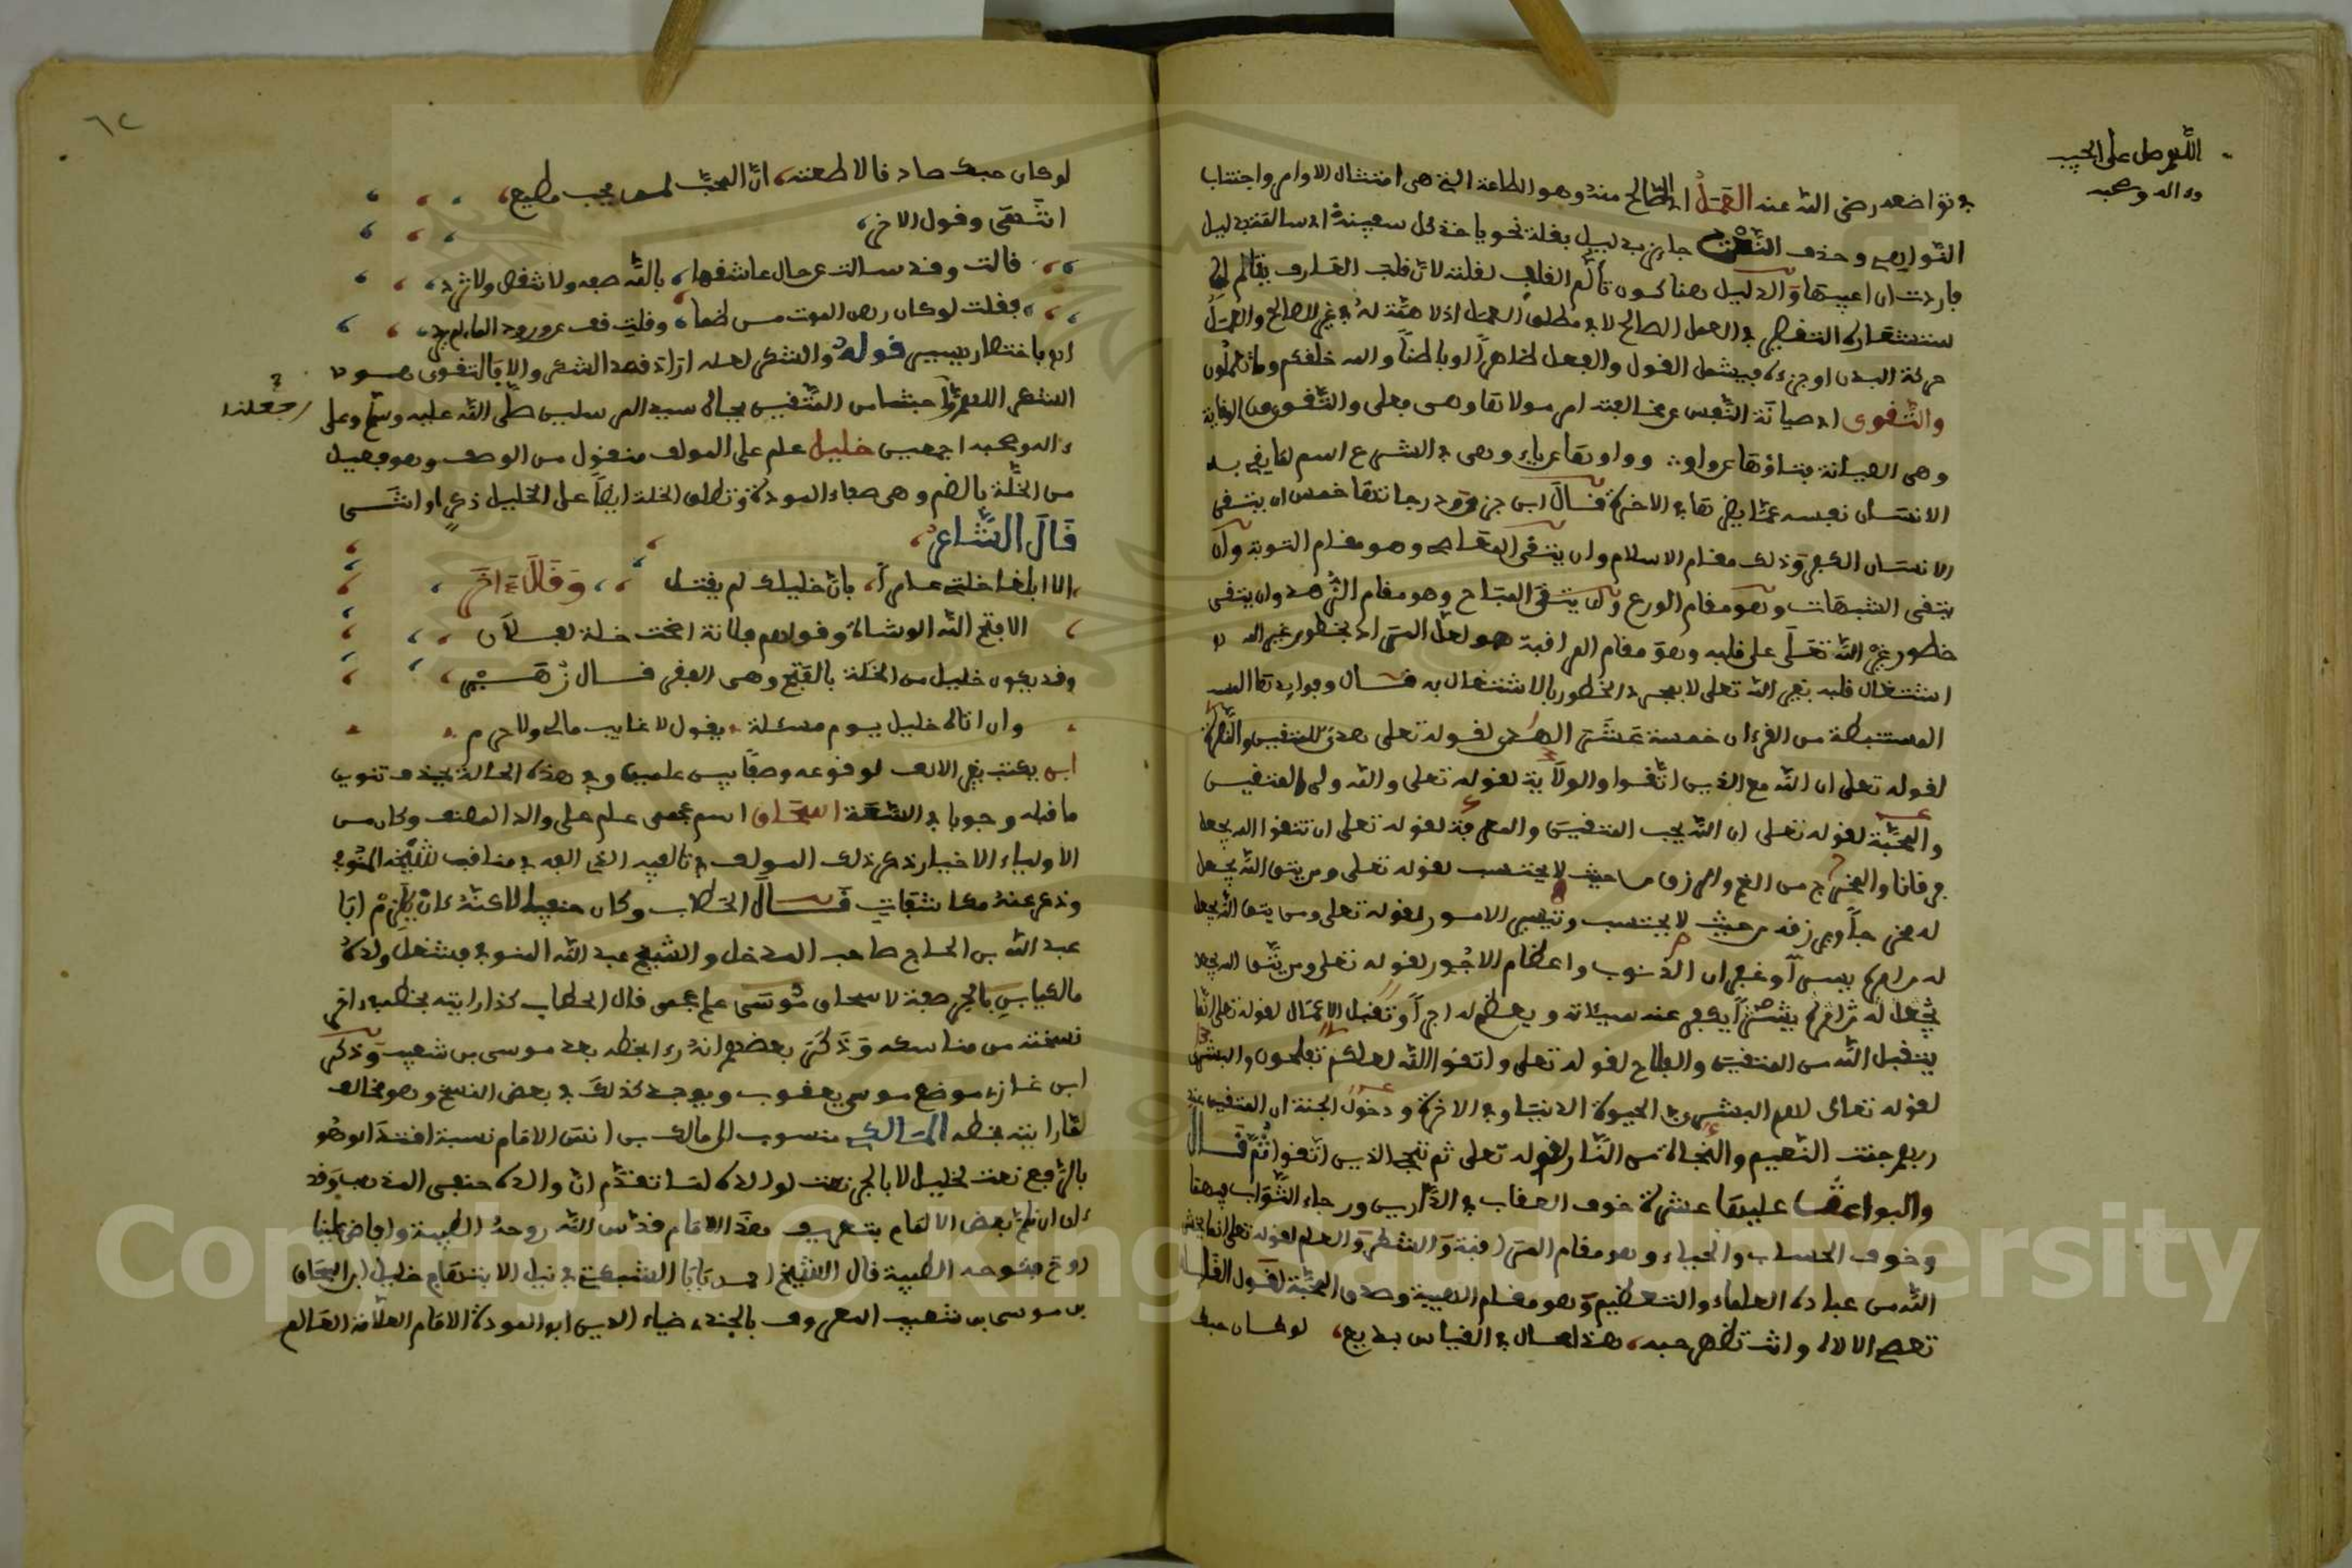 اللهم صل على الحبيب
وءاله وصحبه
في تواضعه رضي الله عنه العمل اي الصالح منه وهو الطاعة التي هي امتثال الاوامر واجتناب
النواهي وحذف النعت جايز بدليل يخلفه نحو ياخذ كل سفينة اي سالمة بدليل
فاردت ان اعيبها والدليل هنا كون تالم القلب لقلته لان قلب العارف يتالم
لاستشعاره التقصير في العمل الصالح لا في مطلق العمل اذ لا همة له في غير الصالح والعمل
حركة البدن او جزءه فيشمل القول والفعل ظاهرا او باطنا والله خلقكم وما تعملون
والتقوى اي صيانة النفس عن مخالفة امر مولانا وهي فعلى والتقوى من الوقاية
وهي الصيانة فتاؤها عن واو وواوها عن ياء وهي في الشرع اسم لما يقي به
الانسان نفسه عما يضرها في الاخرة قال ابن جزي ودرجاتها خمس ان يتقي
الانسان الكفر وذلك مقام الاسلام وان يتقي المعاصي وهو مقام التوبة وان
يتقي الشبهات وهو مقام الورع وان يتقي المباح وهو مقام الزهد وان يتقي
خطور غير الله تعلى على قلبه وهو مقام المراقبة هو لعل المراد بخطور غير الله
اشتغال قلبه بغير الله تعلى لا بمجرد الخطور بالاشتغال به قال وفوايدها
المستنبطة من القرءان خمسة عشر الهدى لقوله تعلى هدى للمتقين والنصرة
لقوله تعلى ان الله مع الذين اتقوا والولاية لقوله تعلى والله ولي المتقين
والمحبة لقوله تعلى ان الله يحب المتقين والمعرفة لقوله تعلى ان تتقوا الله يجعل
فرقانا والمخرج من الغم والرزق من حيث لا يحتسب لقوله تعلى ومن يتق الله يجعل
له مخرجا ويرزقه من حيث لا يحتسب وتيسير الامور لقوله تعلى ومن يتق الله يجعل
له من امره يسرا وغفران الذنوب واعظام الاجور لقوله تعلى ومن يتق الله
يجعل له من امره يسرا يكفر عنه سيئاته ويعظم له اجرا وتقبل الاعمال لقوله تعلى انما
يتقبل الله من المتقين والفلاح لقوله تعلى واتقوا الله لعلكم تفلحون والبشرى
لقوله تعالى لهم البشرى في الحيوة الدنيا وفي الاخرة ودخول الجنة ان المتقين عند
ربهم جنت النعيم والنجاة من النار لقوله تعلى ثم ننجي الذين اتقوا ثم قال
والبواعث عليها عشرة خوف العقاب في الدارين ورجاء الثواب فيهما
وخوف الحساب والحياء وهو مقام المراقبة والشكر والعلم لقوله تعلى انما يخشى
الله من عباده العلماء والتعظيم وهو مقام الهيبة وصدق المحبة لقول القائل
تعصي الاله وانت تظهر حبه هذا محال في القياس بديع لو كان حبك
٦٢
لو كان حبك صادقا لاطعته ان المحب لمن يحب مطيع
انتهى وقول الاخر
قالت وقد سالت عن حال عاشقها بالله صفه ولا تنقص ولا تزد
فقلت لو كان رهن الموت من ظما وقلت قف عن ورود الماء لم يرد
انه باختصار يسير قوله والشكر لعله اراد قصد الشكر والا فالتقوى هو
الشكر اللهم احشرنا من المتقين بجاه سيد المرسلين صلى الله عليه وسلم وعلى
واجعلنا
ءاله وصحبه اجمعين خليل علم على المولف منقول من الوصف وهو فعيل
من الخلة بالضم وهي صفاء المودة وتطلق الخلة ايضا على الخليل ذكرا او انثى
قال الشاعر
الا ابلغا خلتي عامرا بان خليلك لم يقتل وقال ءاخر
الا قبح الله الوشاة وقولهم فلانة اضحت خلة لفلان
وقد يكون خليل من الخلة بالفتح وهي الفقر قال زهير
وان اتاه خليل يوم مسئلة يقول لا غايب مالي ولا حرم
ابن يكتب بغير الالف لوقوعه وصفا بين علمين وفي هذه الحالة يحذف تنوين
ما قبله وجوبا في السعة اسحاق اسم عجمي علم على والد المصنف وكان من
الاولياء الاخيار ذكر ذلك المولف في تاليفه الذي الفه في مناقب شيخه المنوفي
وذكر عنه مكاشفات قال الحطاب وكان حنفيا لاكنه كان يلزم ابا
عبد الله بن الحاج صاحب المدخل والشيخ عبد الله المنوفي فشغل ولده
مالكيا بن بالجر صفة لاسحاق موسى علم عجمي قال الحطاب كذا رايته بخطه في ءاخر
نسخته من مناسكه وذكر بعضهم انه راى بخطه بعد موسى بن شعيب وذكر
ابن غازي موضع موسى يعقوب ويوجد كذلك في بعض النسخ وهو مخالف
لما رايته بخطه المالكي منسوب الى مالك بن انس الامام نسبة اقتداء وهو
بالرفع نعت لخليل لا بالجر نعت لوالده لما تقدم ان والده حنفي المذهب وقد
ءان ان نلم بعض الالمام بتعريف هذا الامام قدس الله روحه الطيبة وافاض علينا
روح فتوحه الطيبة قال الشيخ احمد بابا التنبكتي في نيل الابتهاج خليل بن اسحاق
بن موسى بن شعيب المعروف بالجندي ضياء الدين ابو المودة الامام العلامة العالم
Copyright © King Saud University